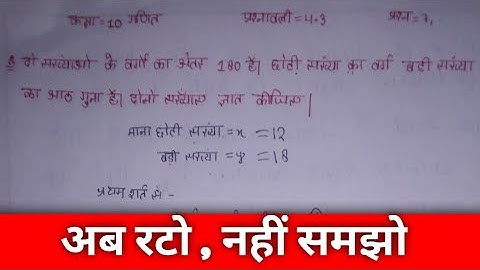 कक्षा = 10 गणित प्रश्नावली = 4.3 प्रश्न = 7,
दो संख्याओ के वर्गों का अंतर 180 है। छोटी संख्या का वर्ग बड़ी संख्या
का आठ गुना है। दोनो संख्याए ज्ञात कीजिए।
माना छोटी संख्या = x = 12
बड़ी संख्या = y = 18
प्रथम शर्त से :-
अब रटो , नहीं समझो